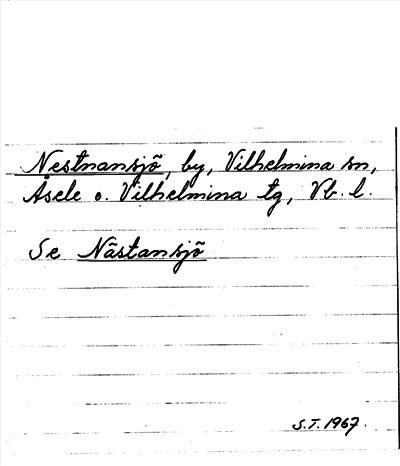 Nestnansjö, by, Vilhelmina sn,
Åsele o. Vilhelmina tg, Vb. l.
Se Nästansjö
S.T. 1967.